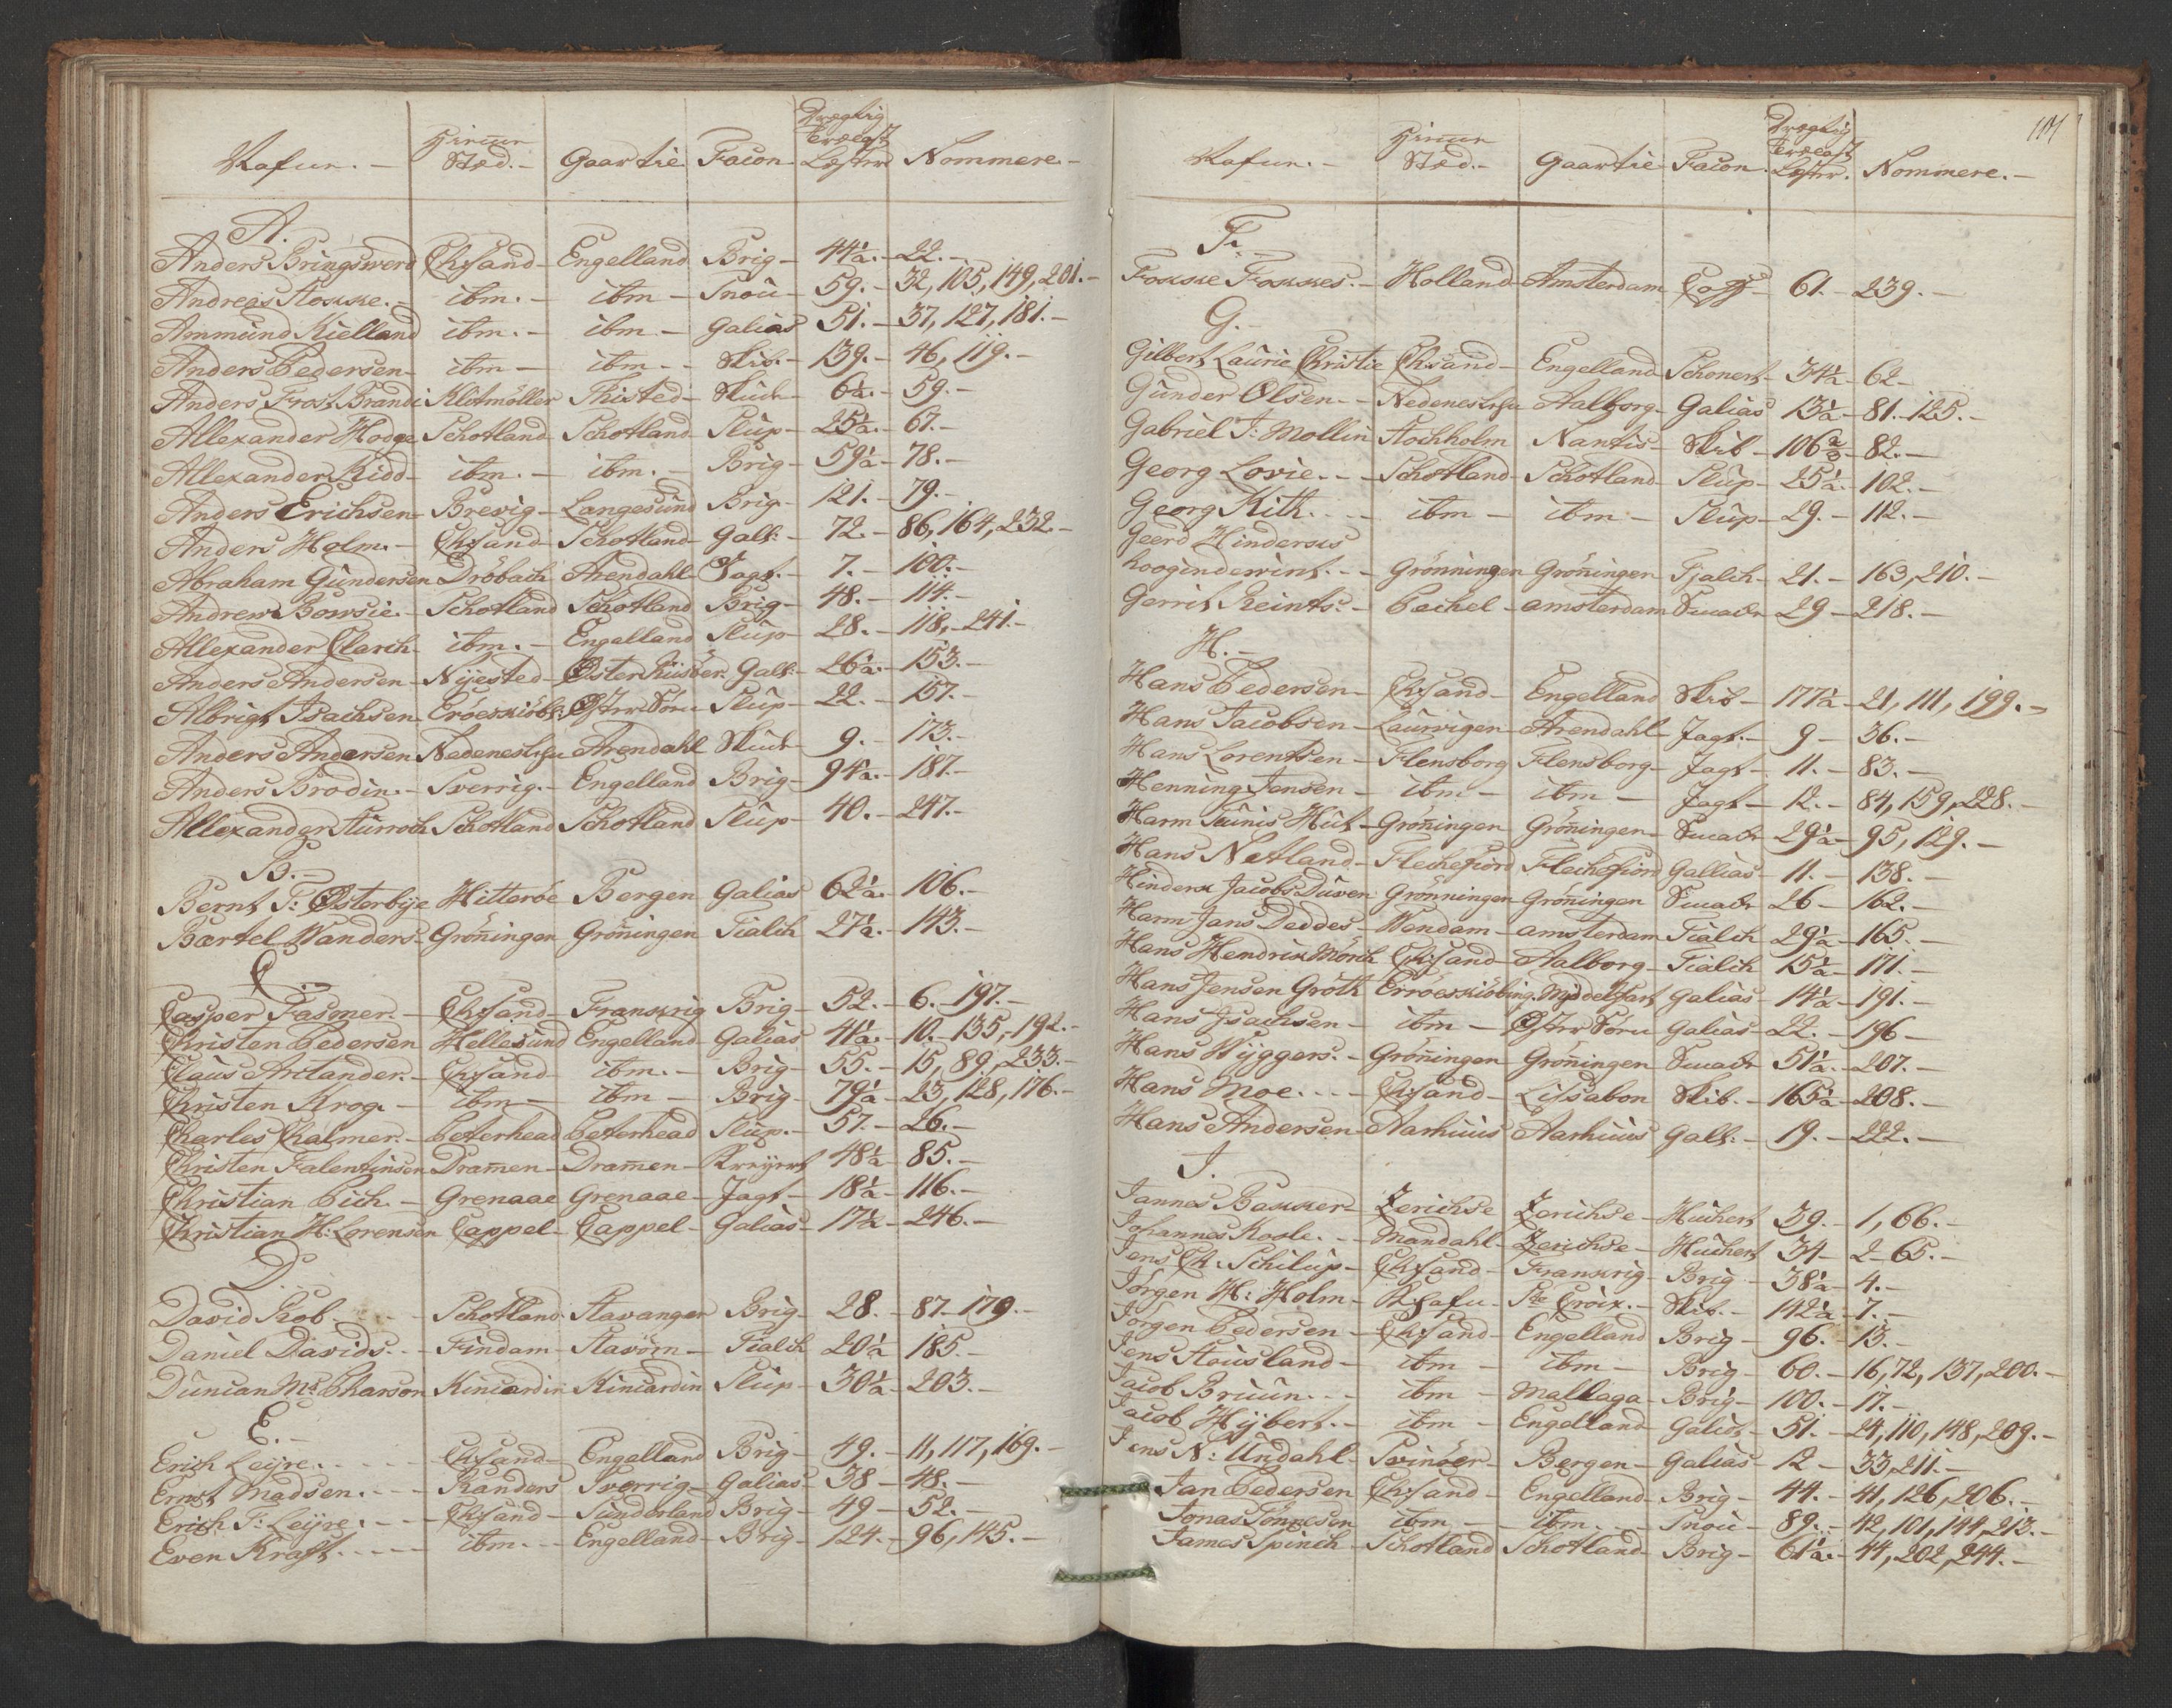 Drægtig
Hiem
Nafn. – Stæd. – Gaar til Facon Læster Nommere –
A.
Anders Bringswerd Chrsand – Engelland Brig – 44½. – 22. –
Andreas Stokke. – ibm. – ibm – Snou – 59. – 32, 105, 149, 201. –
Ammund Kielland ibm. – ibm – Galias 51. – 37, 127, 181. –
Anders Pedersen – ibm – ibm – Skib. – 139. – 46, 119. –
Anders Frost Brandi Klitmöller Thisted – Skude 6½. – 59. –
Allexander Hodge Schotland Schotland Slup – 25½. – 67. –
Allexander Kidd – ibm. – ibm. – Brig – 59½ – 78. –
Anders Erichsen – Brevig – Langesund Brig – 121. – 79. –
Anders Holm. – Chrsand – Schotland – Gall: – 72. – 86, 164, 232. –
Abraham Gundersen Dröbach Arendahl – Jagt. – 7. – 100. –
Andrew Bowsie. – Schotland Schotland Brig – 48. – 114. –
Allexander Clarch – ibm. – Engelland Slup – 28. – 118, – 241. –
Anders Andersen – Nijested – Österrüsöer Gall: – 26½. – 153. –
Albrigt Isachsen Eröeskiöb: Slup – 22. – 157. –
Anders Andersen Nedeneslehn Arendahl Skude 9. – 173. –
Anders Brodin. – Sverrig. – Engelland Brig – 94½. – 187. –
Allexander Sturroch Schotland Schotland Slup – 40. – 247. –
B. –
Bernt T: Österbije Hitteröe Bergen Galias 62½. – 106. –
Bartel Wanders – Gröningen Gröningen Tialch 27½. – 143. –
C.
Casper Fasmer. – Chrsand – Frankrig Brig – 52. – 6. – 197. –
Christen Pedersen Hellesund Engelland – Galias 41½. – 10. – 135, – 192. –
Claus Arctander. – Chrsand – ibm. – Brig – 55. – 15, 89, 233. –
Christen Krog. – ibm – ibm – Brig – 79½ – 23, 128, 176. –
Charles Chalmer. – Peterhead Peterhead Slup. – 57. – 26. –
Christen Falentinsen Dramen – Dramen – Kreyert 48½ – 85. –
Christian Bich. – Grenaae Grenaae – Jagt – 18½ – 116. –
Christian H: Lorensen Cappel – Cappel – Galias – 17½ – 246. –
D
David Rob – Schotland Stavanger Brig – 28. – 87 – 179. –
Daniel Davids. – Findam – Stavörn – Tialch 20½ 185. –
Duncan Mc: Pharson Kincardin Kincardin Slup – 30½ – 203. –
E. –
Erich Leijre. – Chrsand – Engelland Brig – 49. – 11, 117, 169. –
Ernst Madsen. – Randers Sverrig – Galias – 38 – 48. –
Erich F: Leijre. – Chrsand – Sunderland Brig – 49 – 52. –
Even Kraft. – ibm. – Engelland – Brig – 124. – 96, 145. –
117
Drægtig
Hiem
Nafn. – Stæd. – Gaar til Facon Læster. Nommere. –
F.
Fokke Fokkes. – Holland – Amsterdam Coff – 61. – 239. –
G. –
Gilbert Laurie Christie Chrsand – Engelland Schonert – 34½ – 62 –
Gunder Olsen – Nedeneslehn Aalborg – Galias 13½ – 81. – 125. –
Gabriel J: Mollin Stochholm Nantis – Skib – 106⅔ – 82. –
Georg Lovie. – Schotland – Schotland – Slup – 25½. – 102. –
Georg Kith. – ibm – ibm – Slup – 29. – 112. –
Geerd Hinderks
Hooginderwint. – Grönningen Gröningen Tjalch – 21. – 163, 210. –
Gerrit Reints. – Pechel – Amsterdam Smack 29 – 218. –
H. –
Hans Pedersen – Chrsand – Engelland Skib – 177½ – 21, 111, 199. –
Hans Jacobsen – Laurvigen Arendahl – Jagt. – 9 – 36. –
Hans Lorentsen – Flensborg Flensborg – Jagt – 11. – 83. –
Henning Jensen – ibm – ibm – Jagt – 12. – 84, 159, 228. –
Harm Teunis Hut – Gröningen Gröningen – Smack 29½ – 95, 129. –
Hans Netland – Flechefiord Flechefiord Gallias – 11. – 138. –
Hinderk Jacobs Duven Grönningen Gröningen Smack 26 – 162. –
Harm Jans Deddes – Wendam – Amsterdam Tialch 29½ – 165. –
Hans Hendrik Mörch Chrsand – Aalborg – Tialch 15½ – 171. –
Hans Jensen Gröth Erröeskiöbing Middelfart Galias – 14½ – 191. –
Hans Isachsen – ibm – Galias – 22. – 196 –
Hans Wijggers. – Gröningen Gröningen Smack 51½. – 207. –
Hans Moe. – Chrsand – Lissabon Skib. – 165½ – 208. –
Hans Andersen – Aarhuus Aarhuus Gall: – 19. – 222. –
J.
Jannes Bakker – Zerichse Zerichse – Huchert 39. – 1, 66. –
Johannes Kosle. – Mandahl – Zerichse – Huchert 34 – 2 – 65. –
Jens Ch: Schilup – Chrsand – Frankrig – Brig – 38½ – 4. –
Jörgen H: Holm – Khafn – Ste Croix. – Skib. – 142½ – 7. –
Jörgen Pedersen – Chrsand – Engelland Brig – 96. – 13. –
Jens Stousland – ibm – ibm – Brig – 60. – 16, 72, 137, 200. –
Jacob Bruun. – ibm – Mallaga – Brig – 100. – 17. –
Jacob Hijbert. – ibm – Engelland Galiot – 51. – 24, 110, 148, 209. –
Jens N: Undahl – Svinöer – Bergen – Galias – 12 – 33, 211. –
Jan Pedersen Chrsand – Engelland – Brig – 44. – 41, 126, 206. –
Jonas Tönnesen ibm – ibm – Snou – 89. – 42, 101, 144, 213. –
James Spinch – Schotland Schotland – Brig – 61½. – 44, 202, 244. –